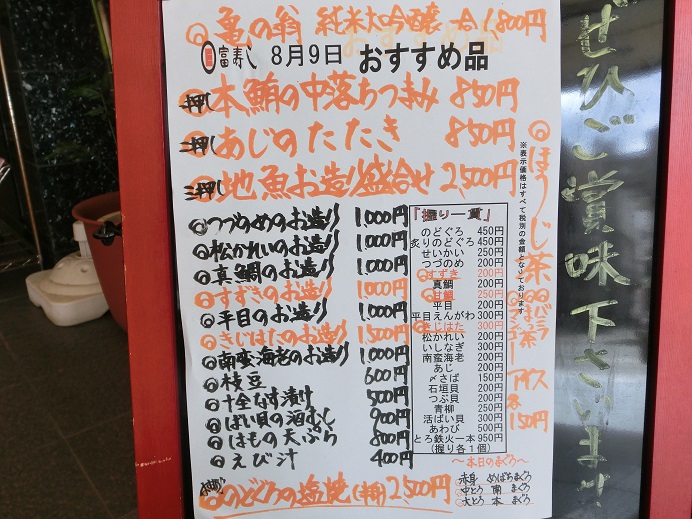 亀の翁 純米大吟醸 一合1,800円
富寿し 8月9日 おすすめ品
一押し 本鮪の中落ちつまみ 850円
二押し あじのたたき 850円
三押し 地魚お造り盛合せ 2,500円
つづのめのお造り 1,000円
松かれいのお造り 1,000円
真鯛のお造り 1,000円
すずきのお造り 1,000円
平目のお造り 1,000円
きじはたのお造り 1,500円
南蛮海老のお造り 1,000円
枝豆 600円
十全なす漬け 500円
ばい貝の酒むし 900円
はもの天ぷら 800円
えび汁 400円
のどぐろの塩焼(半身) 2,500円
「握り一貫」
のどぐろ 450円
炙りのどぐろ 450円
せいかい 250円
つづのめ 200円
すずき 200円
真鯛 200円
甘鯛 250円
平目 200円
平目えんがわ 300円
きじはた 300円
松かれい 200円
いしなぎ 300円
南蛮海老 200円
あじ 200円
〆さば 150円
石垣貝 200円
つぶ貝 200円
青柳 250円
活ばい貝 300円
あわび 500円
とろ鉄火一本 950円
(握り各1個)
〜本日のまぐろ〜
赤身 めばちまぐろ
中とろ 南まぐろ
大とろ 本まぐろ
※表示価格はすべて税別の金額となっております
ほうじ茶
バニラ
抹茶
マンゴー
アイス各150円
ぜひご賞味下さいませ